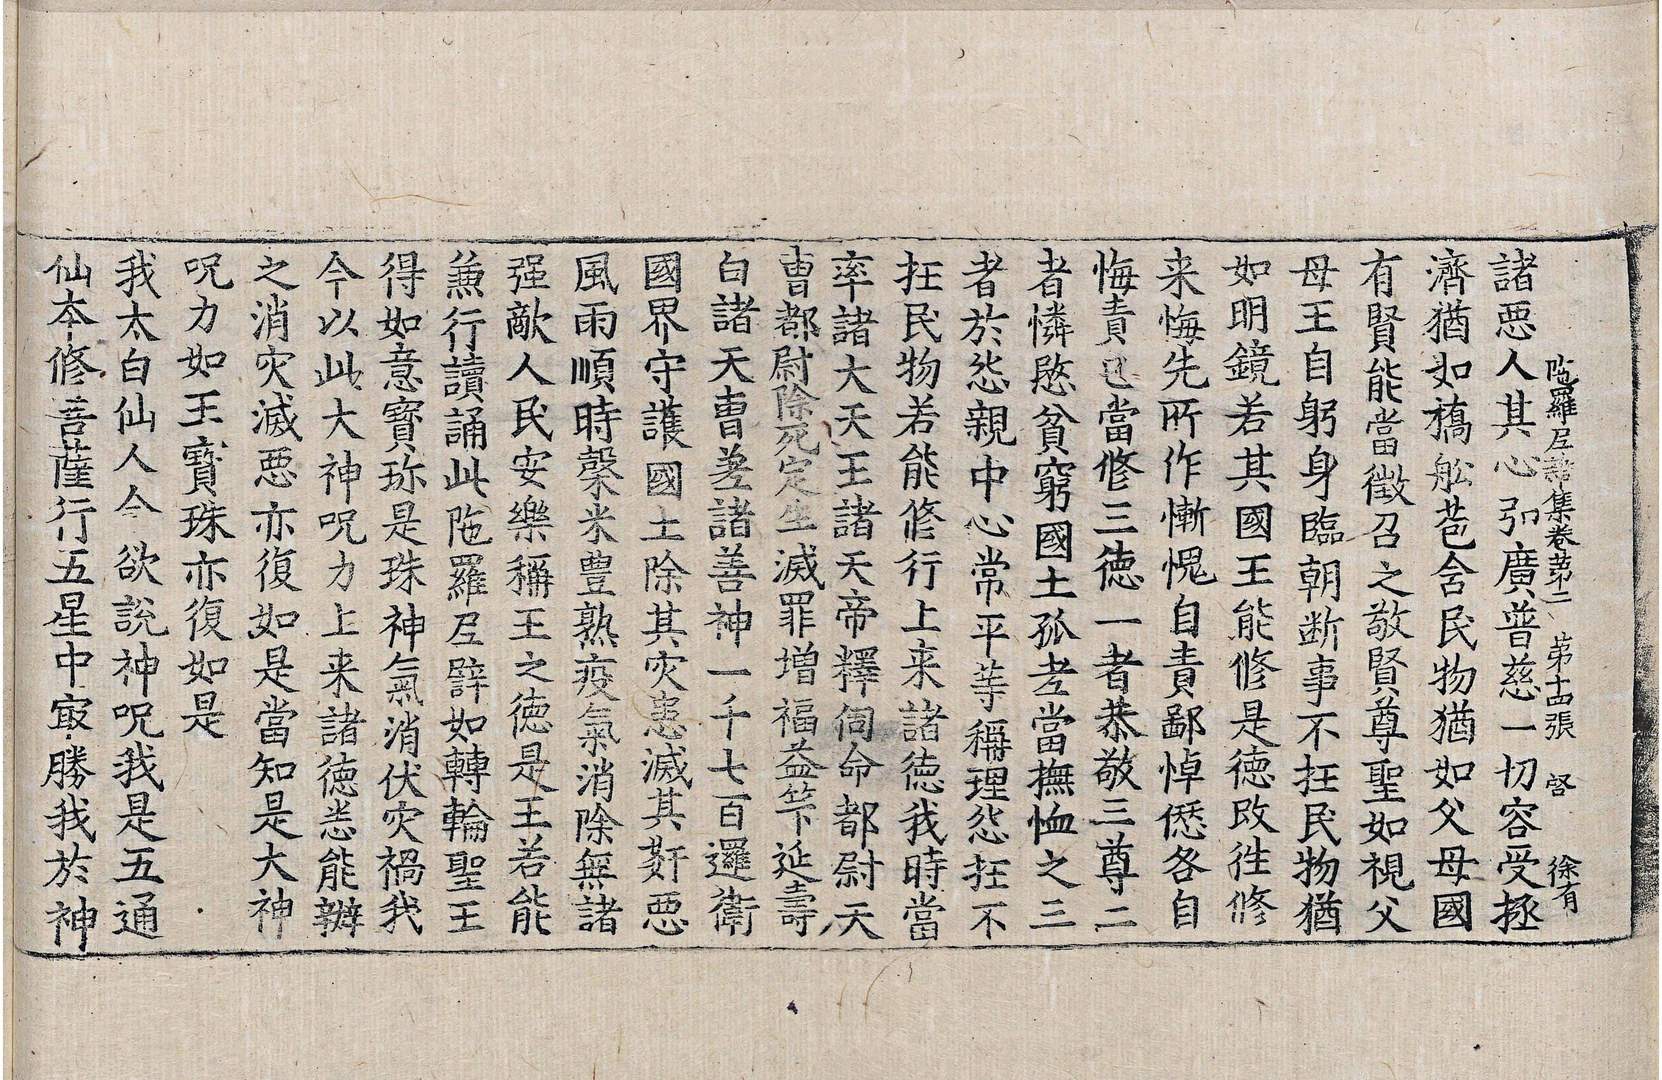 陁羅尼雜集卷苐二　苐十四張　啓　徐有
諸惡人其心引廣普慈一切容受拯
濟猶如橋舩苞含民物猶如父母國
有賢能當徵召之敬賢尊聖如視父
母王自躬身臨朝断事不抂民物猶
如明鏡若其國王能修是德改往修
来悔先所作慚愧自責鄙悼愆各自
悔責已當修三德一者恭敬三尊二
者憐愍貧窮國土孤老當撫恤之三
者於怨親中心常平䓁稱理怨抂不
抂民物若能修行上来諸德我時當
率諸大天王諸天帝釋伺命都尉天
曹都尉除死定生滅罪增福益筭延壽
白諸天曹差諸善神一千七百邏衛
國界守護國土除其灾患滅其姧惡
風雨順時穀米豊熟疫氣消除無諸
强敵人民安樂稱王之德是王若能
兼行讀誦此陁羅尼譬如轉輪聖王
得如意寶珎是珠神氣消伏灾禍我
今以此大神呪力上来諸德悉能辦
之消灾滅惡亦復如是當知是大神
呪力如王寶珠亦復如是
我太白仙人今欲說神呪我是五通
仙夲修菩薩行五星中㝡勝我於神